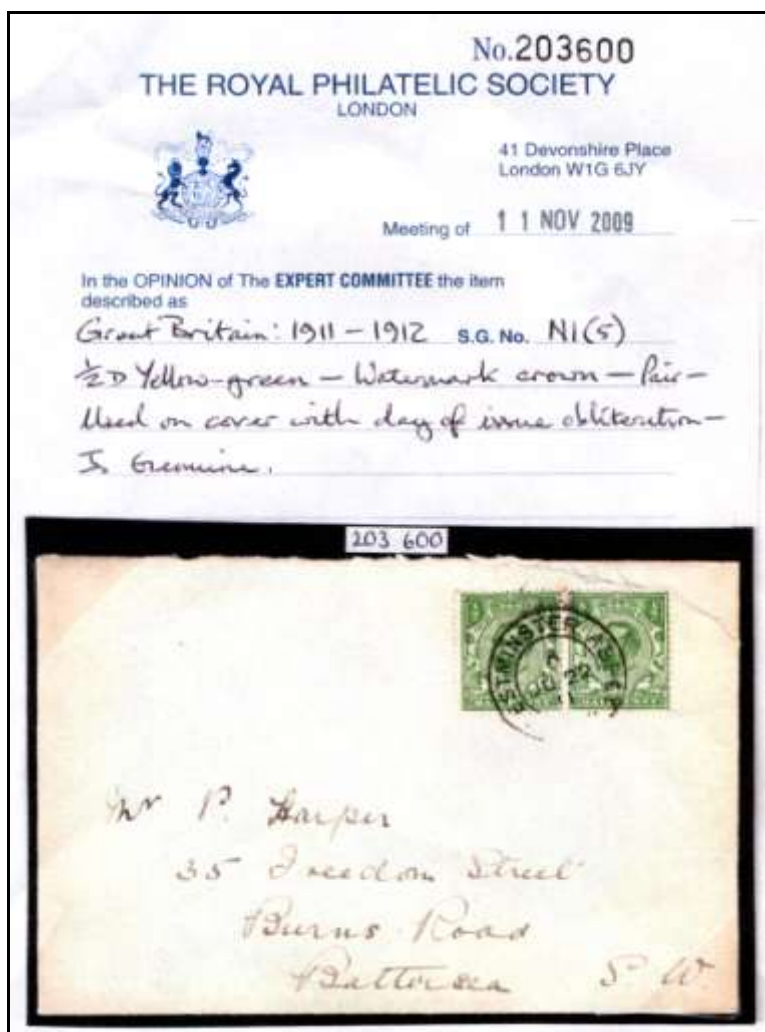 No.203600
THE ROYAL PHILATELIC SOCIETY
LONDON
41 Devonshire Place
London W1G 6JY
Meeting of 11 NOV 2009
In the OPINION of The EXPERT COMMITTEE the item
described as
Great Britain: 1911-1912 S.G. No. N1(5)
½D Yellow-green - Watermark crown - Pair -
Used on cover with day of issue obliteration -
Is Genuine.
203 600
ESTMINSTER
JU 22
Mr P. Harper
35 Freedom Street
Burns Road
Battersea S.W.